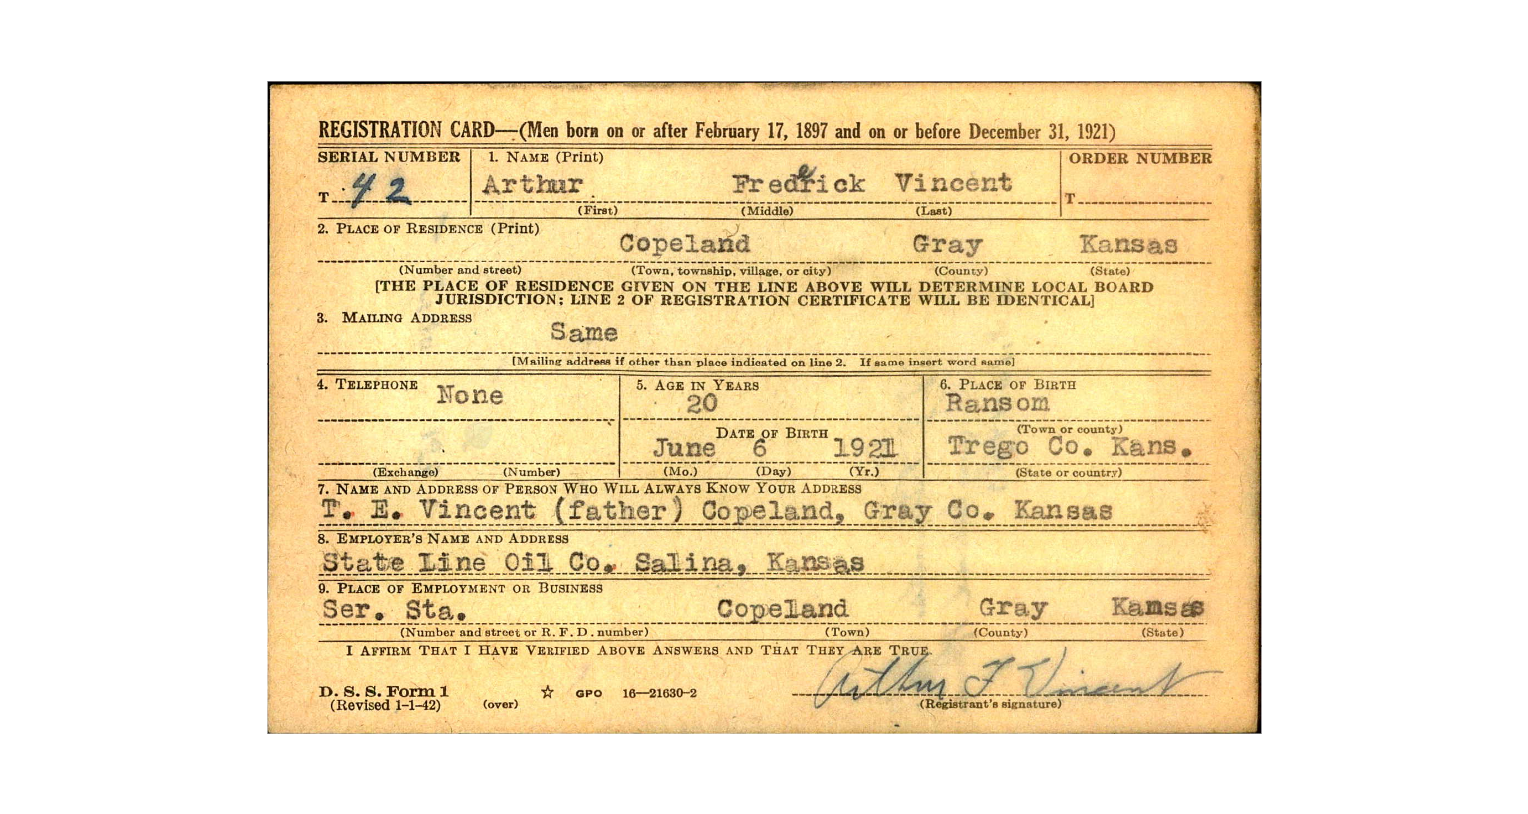 REGISTRATION CARD—(Men born on or after February 17, 1897 and on or before December 31, 1921)
SERIAL NUMBER 1. NAME (Print) ORDER NUMBER
T 42 Arthur Frederick Vincent T
(First) (Middle) (Last)
2. PLACE OF RESIDENCE (Print)
Copeland Gray Kansas
(Number and street) (Town, township, village, or city) (County) (State)
[THE PLACE OF RESIDENCE GIVEN ON THE LINE ABOVE WILL DETERMINE LOCAL BOARD
JURISDICTION; LINE 2 OF REGISTRATION CERTIFICATE WILL BE IDENTICAL]
3. MAILING ADDRESS
Same
[Mailing address if other than place indicated on line 2. If same insert word same]
4. TELEPHONE 5. AGE IN YEARS 6. PLACE OF BIRTH
None 20 Ransom
DATE OF BIRTH (Town or county)
June 6 1921 Trego Co. Kans.
(Exchange) (Number) (Mo.) (Day) (Yr.) (State or country)
7. NAME AND ADDRESS OF PERSON WHO WILL ALWAYS KNOW YOUR ADDRESS
T. E. Vincent (father) Copeland, Gray Co. Kansas
8. EMPLOYER'S NAME AND ADDRESS
State Line Oil Co. Salina, Kansas
9. PLACE OF EMPLOYMENT OR BUSINESS
Ser. Sta. Copeland Gray Kamsas
(Number and street or R. F. D. number) (Town) (County) (State)
I AFFIRM THAT I HAVE VERIFIED ABOVE ANSWERS AND THAT THEY ARE TRUE.
Arthur F Vincent
D. S. S. Form 1 GPO 16—21630-2
(Revised 1-1-42) (over) (Registrant's signature)